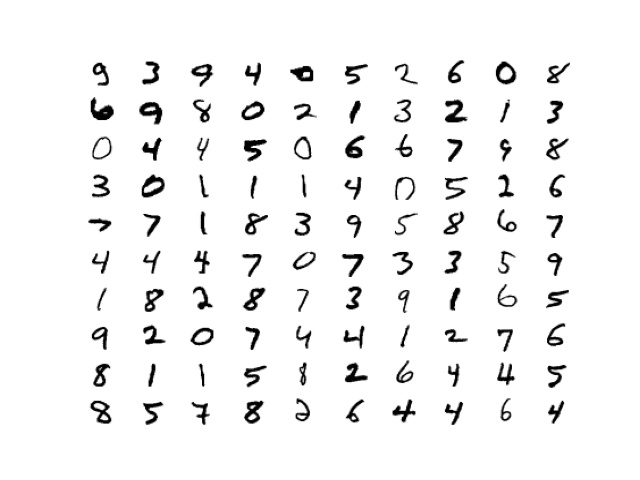 9 3 9 4 0 5 2 6 0 8
6 9 8 0 2 1 3 2 1 3
0 4 4 5 0 6 6 7 9 8
3 0 1 1 1 4 0 5 2 6
7 7 1 8 3 9 5 8 6 7
4 4 4 7 0 7 3 3 5 9
1 8 2 8 7 3 9 1 6 5
9 2 0 7 4 4 1 2 7 6
8 1 1 5 8 2 6 4 4 5
8 5 7 8 2 6 4 4 6 4